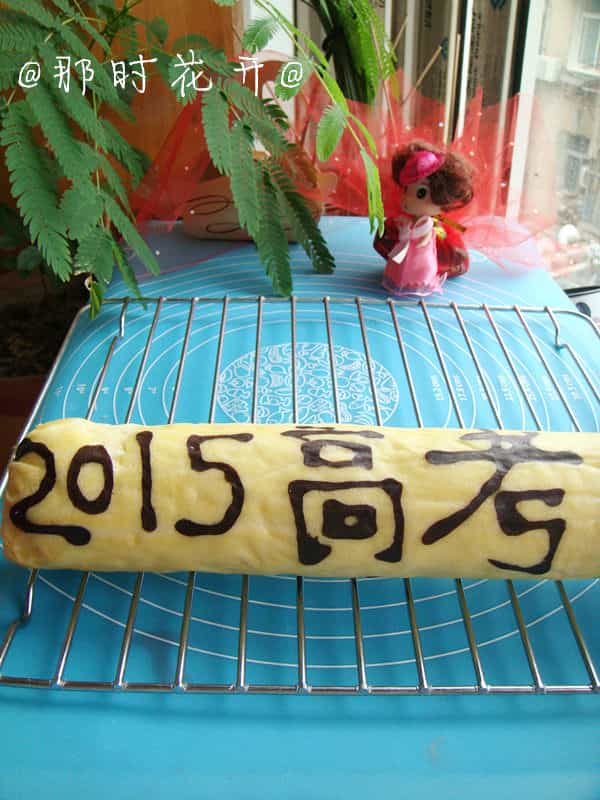 @那时花开@
2015高考